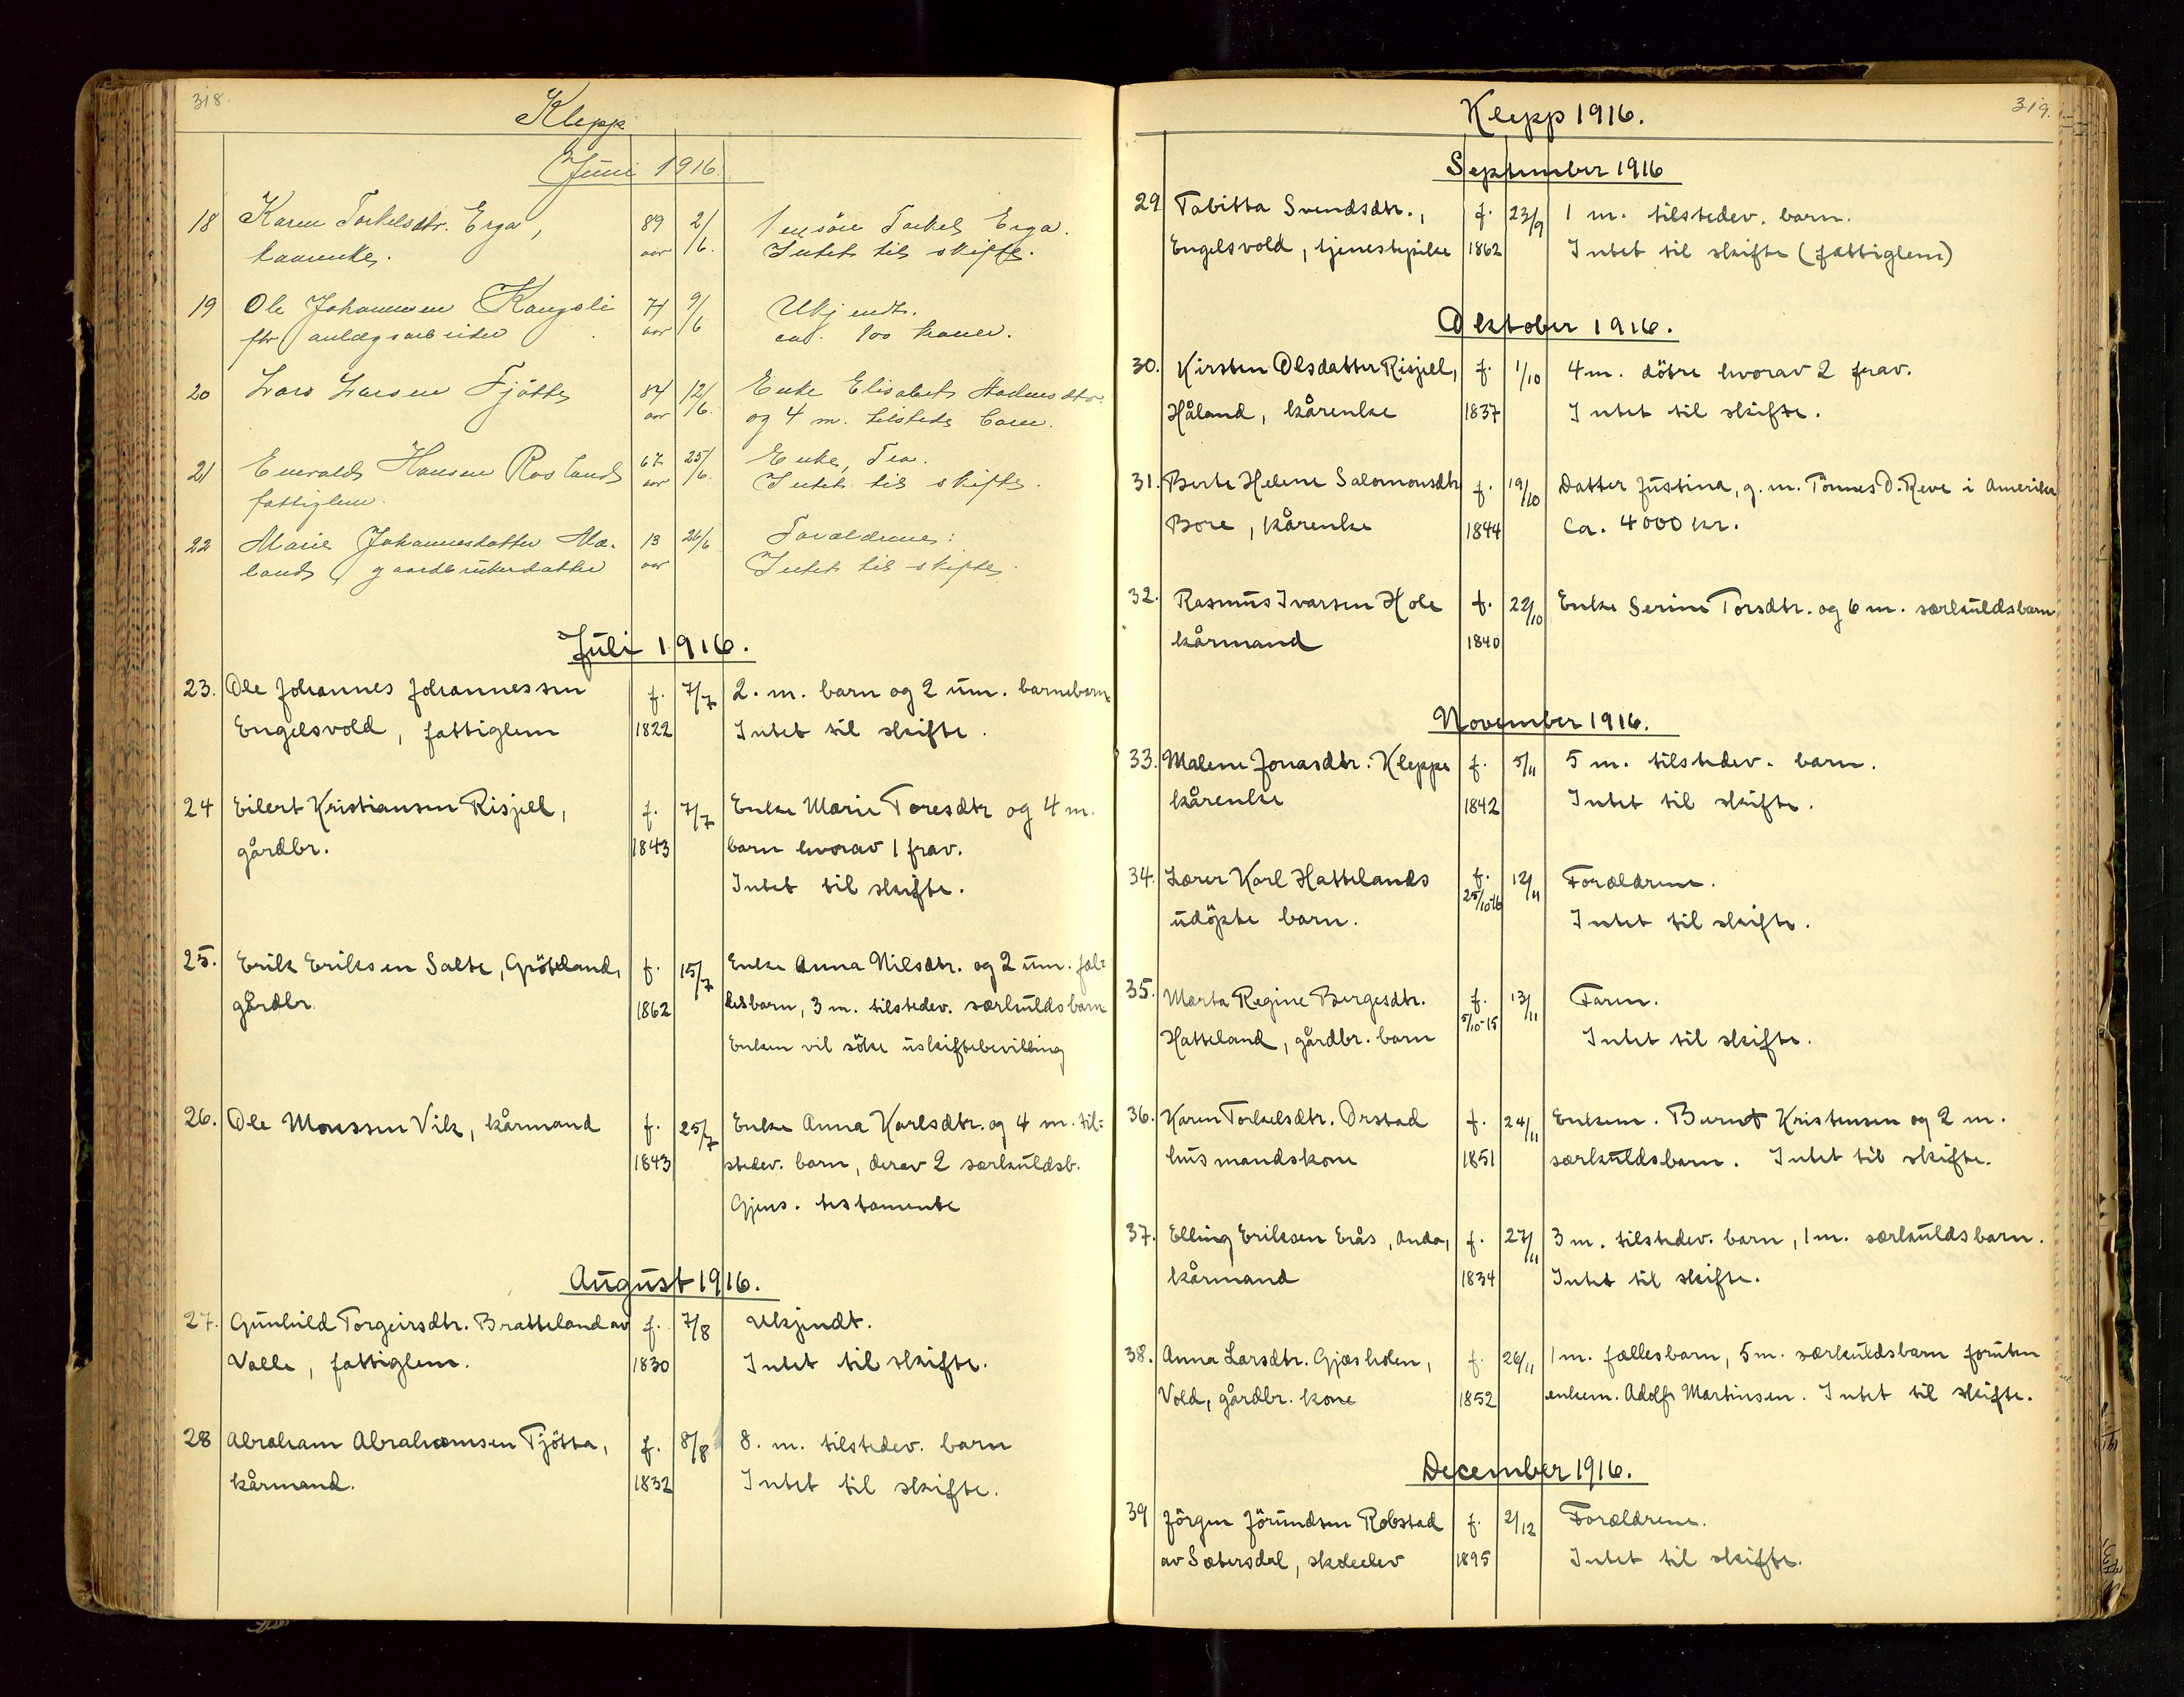 318.
Klepp
Juni 1916.
18 Karen Torkelsdtr. Erga, 89 2/6. 1 en søn Torkel Erga.
kaarenke. aar Intet til skifte.
19 Ole Johannesen Kangsli 71 9/6 Ukjendt.
fhv anlægsarbeider aar ca. 100 kroner.
20 Lars Larsen Tjøtta 84 12/6. Enke Elisabet
aar og 4 m. tilsteds barn.
21 Hansen Rosland 67 25/6. Enke, Tea.
fattiglem. aar Intet til skifte.
22 Marie Johannesdatter Mæ- 13 26/6 Forældrene:
land gaardbrukerdatter aar Intet til skifte.
Juli 1916.
23. Ole Johannes Johannessen f. 7/7 2. m. barn og 2 um. barnebarn
Engelsvold, fattiglem 1822 Intet til skifte.
24 Eilert Kristiansen Risjell, f. 7/7 Enke Marie Toresdtr og 4 m.
gårdbr. 1843 barn hvorav 1 frav.
Intet til skifte.
25. Erik Eriksen Salte, Gröteland, f. 15/7 Enke Anna Nilsdtr. og 2 um. fæl-
gårdbr. 1862 lesbarn, 3 m. tilstedev. særkuldsbarn
Enken vil söke uskiftebevilling
26. Ole Monssen Vik, kårmand f. 25/7 Enke Anna Karlsdtr. og 4 m. til-
1843 stedev. barn, derav 2 særkuldsb.
Gjens. testamente
August 1916.
27. Gunhild Torgeirsdtr. Bratteland av f. 7/8 Ukjendt.
Valle, fattiglem. 1830 Intet til skifte.
28 Abraham Abrahamsen Tjötta, f. 8/8 8. m. tilstedev. barn
kårmand. 1832 Intet til skifte.
319.
Klepp 1916.
September 1916
29 Tabitta Svendsdtr., f. 23/9 1 m. tilstedev. barn.
Engelsvold, tjenestepike 1862 Intet til skifte (fattiglem)
Oktober 1916.
30. Kirsten Olsdatter Risjell, f. 1/10 4 m. döbre hvorav 2 frav.
Håland, kårenke 1837 Intet til skifte.
31. Berte Helene Salomonsdtr f. 19/10 Datter Justina, g. m. Tönnes O. Reve i Amerika
Bore, kårenke 1844 Ca. 4000 kr.
32. Rasmus Ivarsen Hole f. 22/10 Enke Serine Torsdtr. og 6 m. særkuldsbarn
kårmand 1840
November 1916.
33. Malene Jonasdtr. Kleppe f. 5/11 5 m. tilstedev. barn.
kårenke 1842 Intet til skifte.
34. Lærer Karl Hattelands f. 12/11 Forældrene.
udöpte barn. 25/10-16 Intet til skifte.
35. Marta Regine Børgesdtr. f. 13/11 Faren.
Hatteland, gårdbr. barn 5/10-15 Intet til skifte.
36. Karen Torkelsdtr. Orstad f. 24/11 Enkem. Bernt Kristensen og 2 m.
husmandskone 1851 særkuldsbarn. Intet til skifte.
37. Elling Eriksen Erås, Anda, f. 27/11 3 m. tilstedev. barn, 1 m. særkuldsbarn.
kårmand 1834 Intet til skifte.
38. Anna Larsdtr. Gjæsholen, f. 26/11 1 m. fællesbarn, 5 m. særkuldsbarn foruten
Vold, gårdbr. kone 1852 enkem. Adolf Martinsen. Intet til skifte.
December 1916.
39 Jörgen Jörundsen Robstad f. 2/12 Forældrene.
av Sætersdal, skoleelev 1895 Intet til skifte.